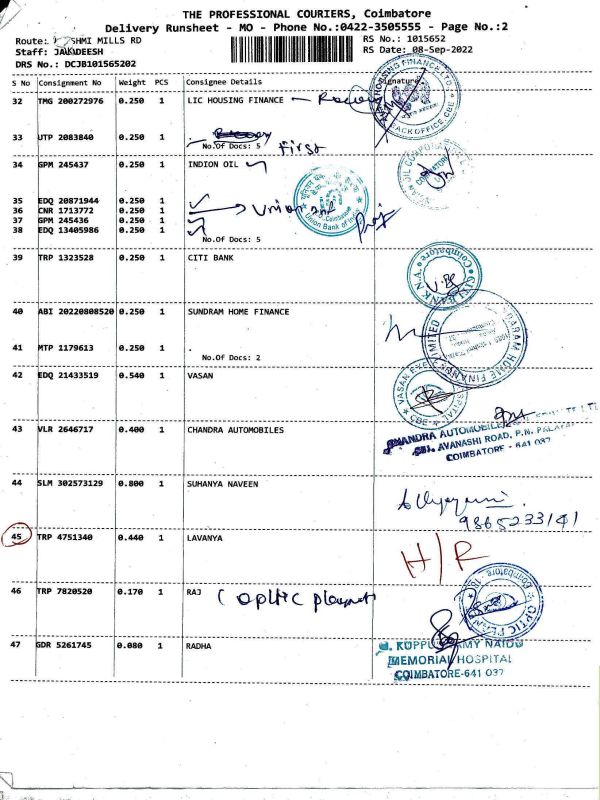 THE PROFESSIONAL COURIERS, Coimbatore
Delivery Runsheet - MO - Phone No.:0422-3505555 - Page No.:2
Route: SHMI MILLS RD
RS No.: 1015652
Staff: JAGADEESH
RS Date: 08-Sep-2022
DRS No.: DCJB101565202
S No Consignment No Weight PCS Consignee Details Signature
32 TMG 200272976 0.250 1 LIC HOUSING FINANCE
BACK OFFICE, CBE
33 UTP 2083840 0.250 1 .
No.Of Docs: 5 First
34 GPM 245437 0.250 1 INDION OIL
35 EDQ 20871944 0.250 1
36 CNR 1713772 0.250 1 Union
37 GPM 245436 0.250 1
38 EDQ 13405986 0.250 1
No.Of Docs: 5
Union Bank of India
39 TRP 1323528 0.250 1 CITI BANK
CITIBANK N.A. Coimbatore
40 ABI 20220808520 0.250 1 SUNDRAM HOME FINANCE
41 MTP 1179613 0.250 1 .
No.Of Docs: 2
SUNDARAM HOME FINANCE LIMITED
42 EDQ 21433519 0.540 1 VASAN
VASAN EYE HOSPITAL CBE
43 VLR 2646717 0.400 1 CHANDRA AUTOMOBILES
CHANDRA AUTOMOBILE
AVANASHI ROAD, P.N. PALAYAM
COIMBATORE - 641 037
44 SLM 302573129 0.800 1 SUHANYA NAVEEN
9865233141
45 TRP 4751340 0.440 1 LAVANYA H/R
46 TRP 7820520 0.170 1 RAJ (optic planet
Coimbatore
47 GDR 5261745 0.080 1 RADHA
G. KUPPUSAMY NAIDU
MEMORIAL HOSPITAL
COIMBATORE-641 037